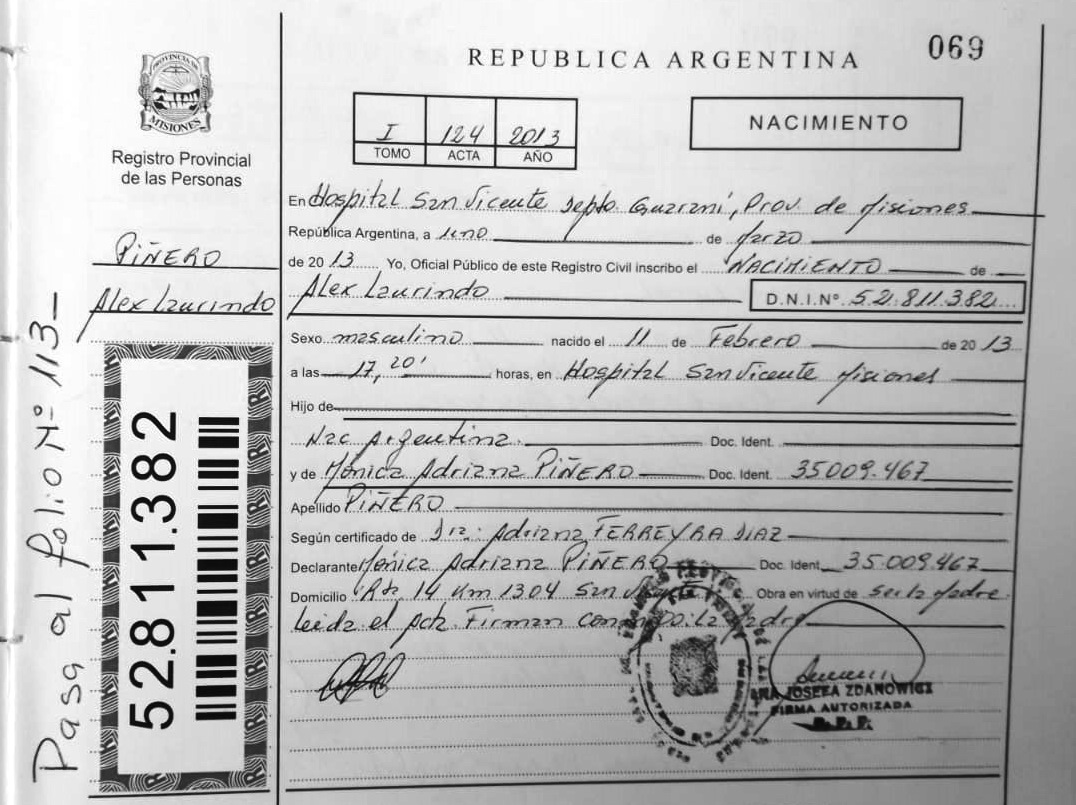 REPUBLICA ARGENTINA
069
PROVINCIA DE
MISIONES
Registro Provincial
de las Personas
I 124 2013
TOMO ACTA AÑO
NACIMIENTO
PIÑERO
Alex Laurindo
Pasa al folio Nº 113
52.811.382
En Hospital San Vicente Depto. Guaraní, Prov. de Misiones
República Argentina, a uno de Marzo
de 2013 Yo, Oficial Público de este Registro Civil inscribo el NACIMIENTO de
Alex Laurindo D.N.I.Nº 52.811.382
Sexo masculino nacido el 11 de Febrero de 2013
a las 17,20' horas, en Hospital San Vicente Misiones
Hijo de
Nac Argentina Doc. Ident.
y de Mónica Adriana PIÑERO Doc. Ident. 35009.467
Apellido PIÑERO
Según certificado de Dra. Adriana FERREYRA DIAZ
Declarante Mónica Adriana PIÑERO Doc. Ident. 35.009.467
Domicilio Rta. 14 Km 1304 San Obra en virtud de ser la Madre
Leida el Acta Firman la Madre
ANA JOSEFA ZDANOWICZ
FIRMA AUTORIZADA
R. P. P.